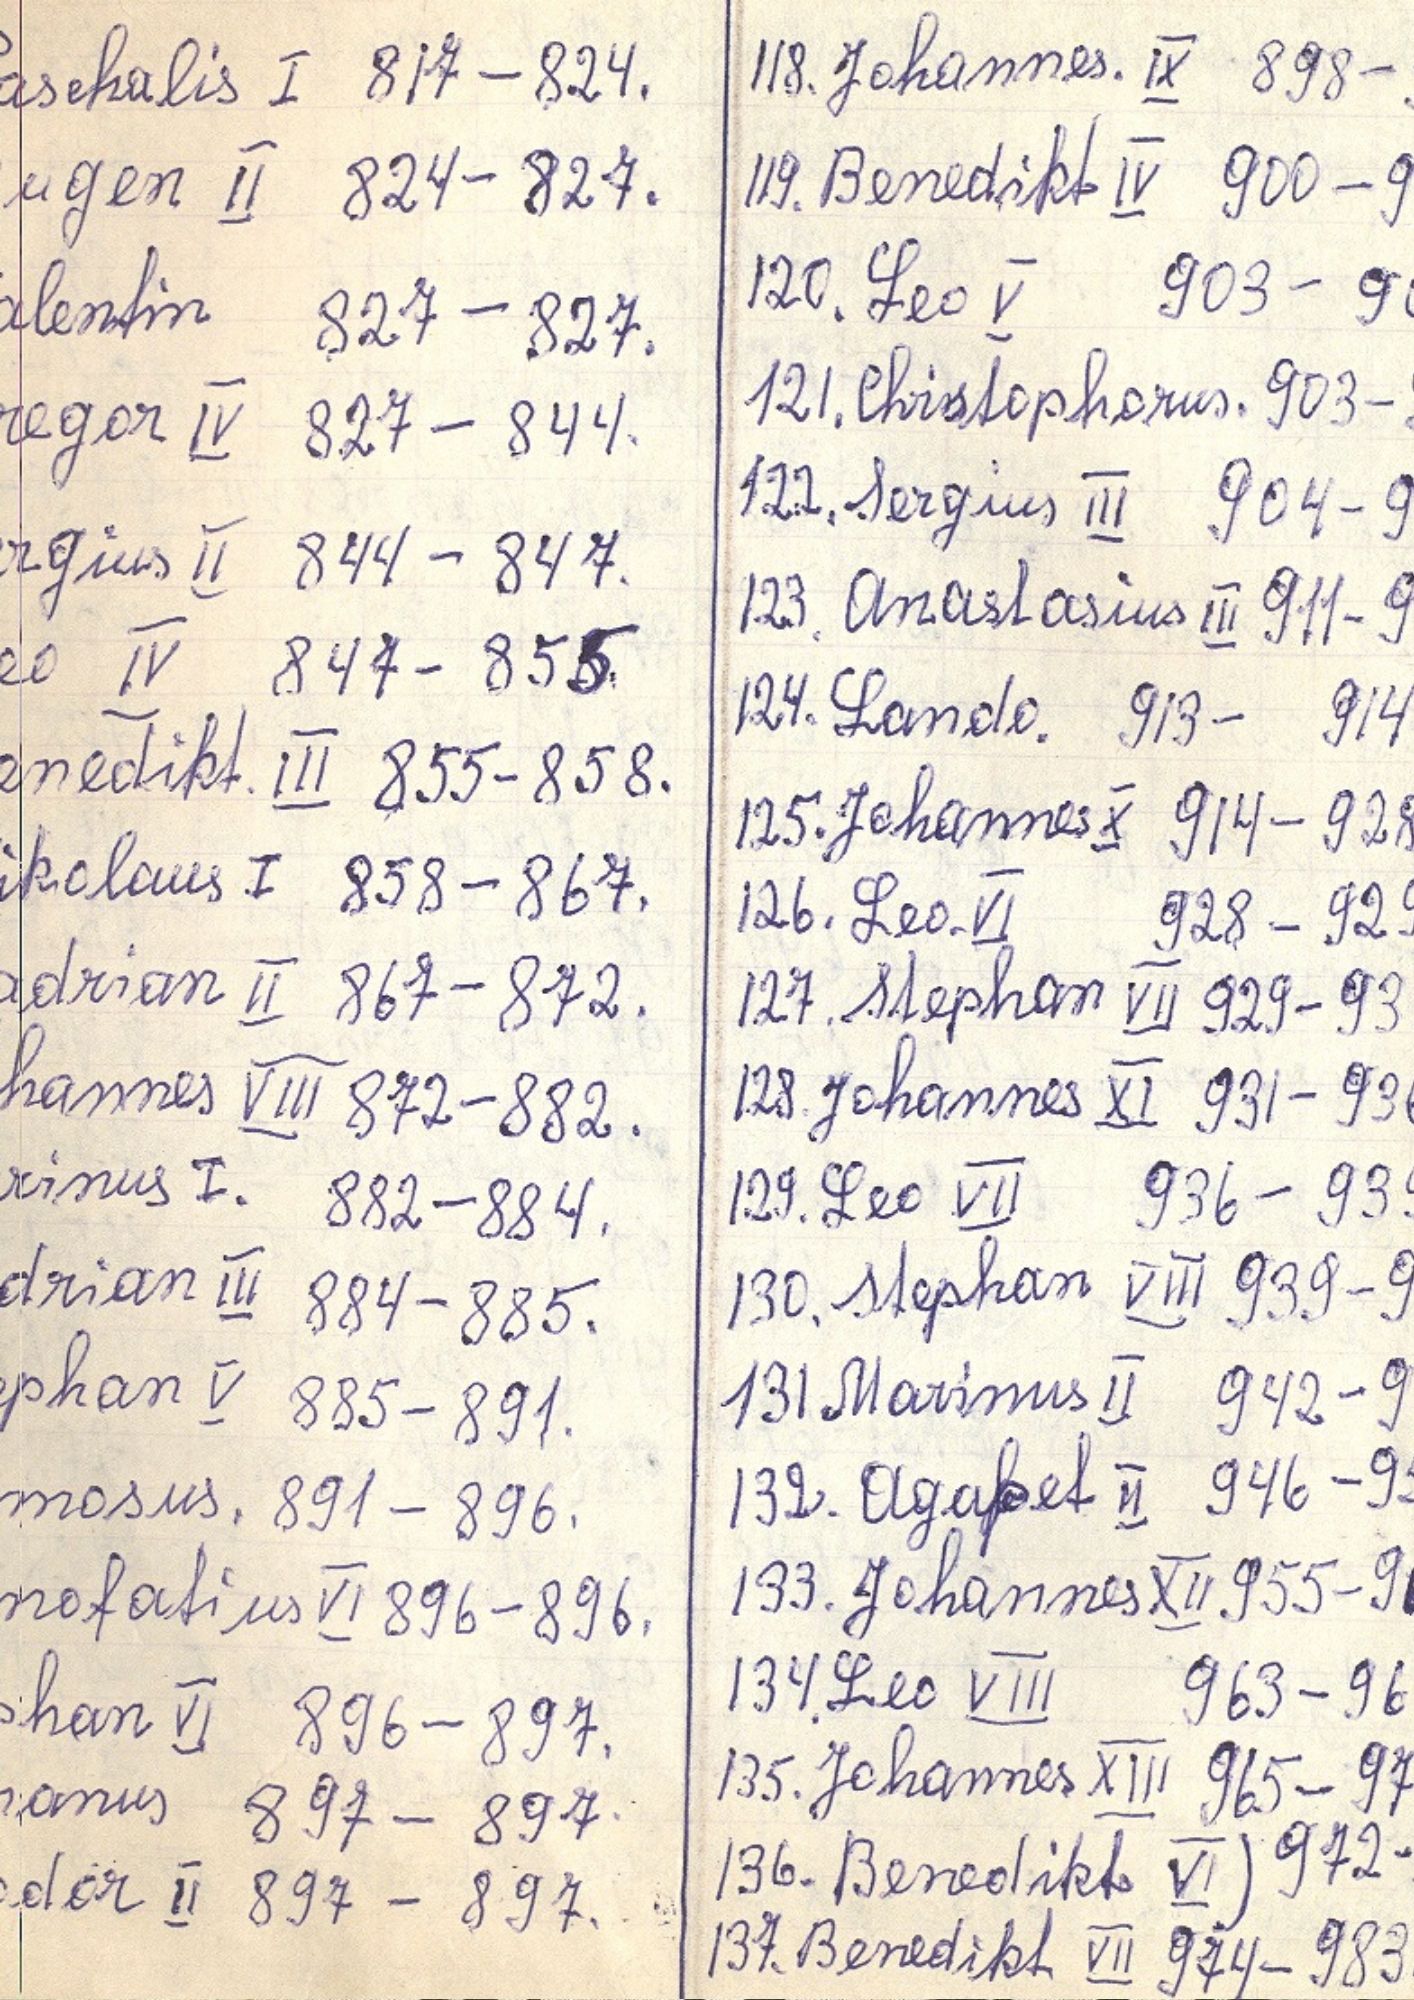 Paschalis I 817 – 824.
ugen II 824 – 827.
alentin 827 – 827.
regor IV 827 – 844.
rgius II 844 – 847.
eo IV 847 – 855.
enedikt. III 855 – 858.
ikolaus I 858 – 867.
adrian II 867 – 872.
hannes VIII 872 – 882.
rinus I. 882 – 884.
drian III 884 – 885.
ephan V 885 – 891.
mosus. 891 – 896.
nofatius VI 896 – 896.
phan VI 896 – 897.
manus 897 – 897.
odor II 897 – 897.
118. Johannes. IX 898 –
119. Benedikt IV 900 – 9
120. Leo V 903 – 90
121. Christophorus. 903 –
122. Sergius III 904 – 9
123. Anastasius III 911 – 9
124. Lando. 913 – 914
125. Johannes X 914 – 928
126. Leo. VI 928 – 929
127. Stephan VII 929 – 93
128. Johannes XI 931 – 936
129. Leo VII 936 – 939
130. Stephan VIII 939 – 9
131. Marinus II 942 – 9
132. Agapet II 946 – 95
133. Johannes XII 955 – 96
134. Leo VIII 963 – 96
135. Johannes XIII 965 – 97
136. Benedikt VI) 972 –
137. Benedikt VII 974 – 983